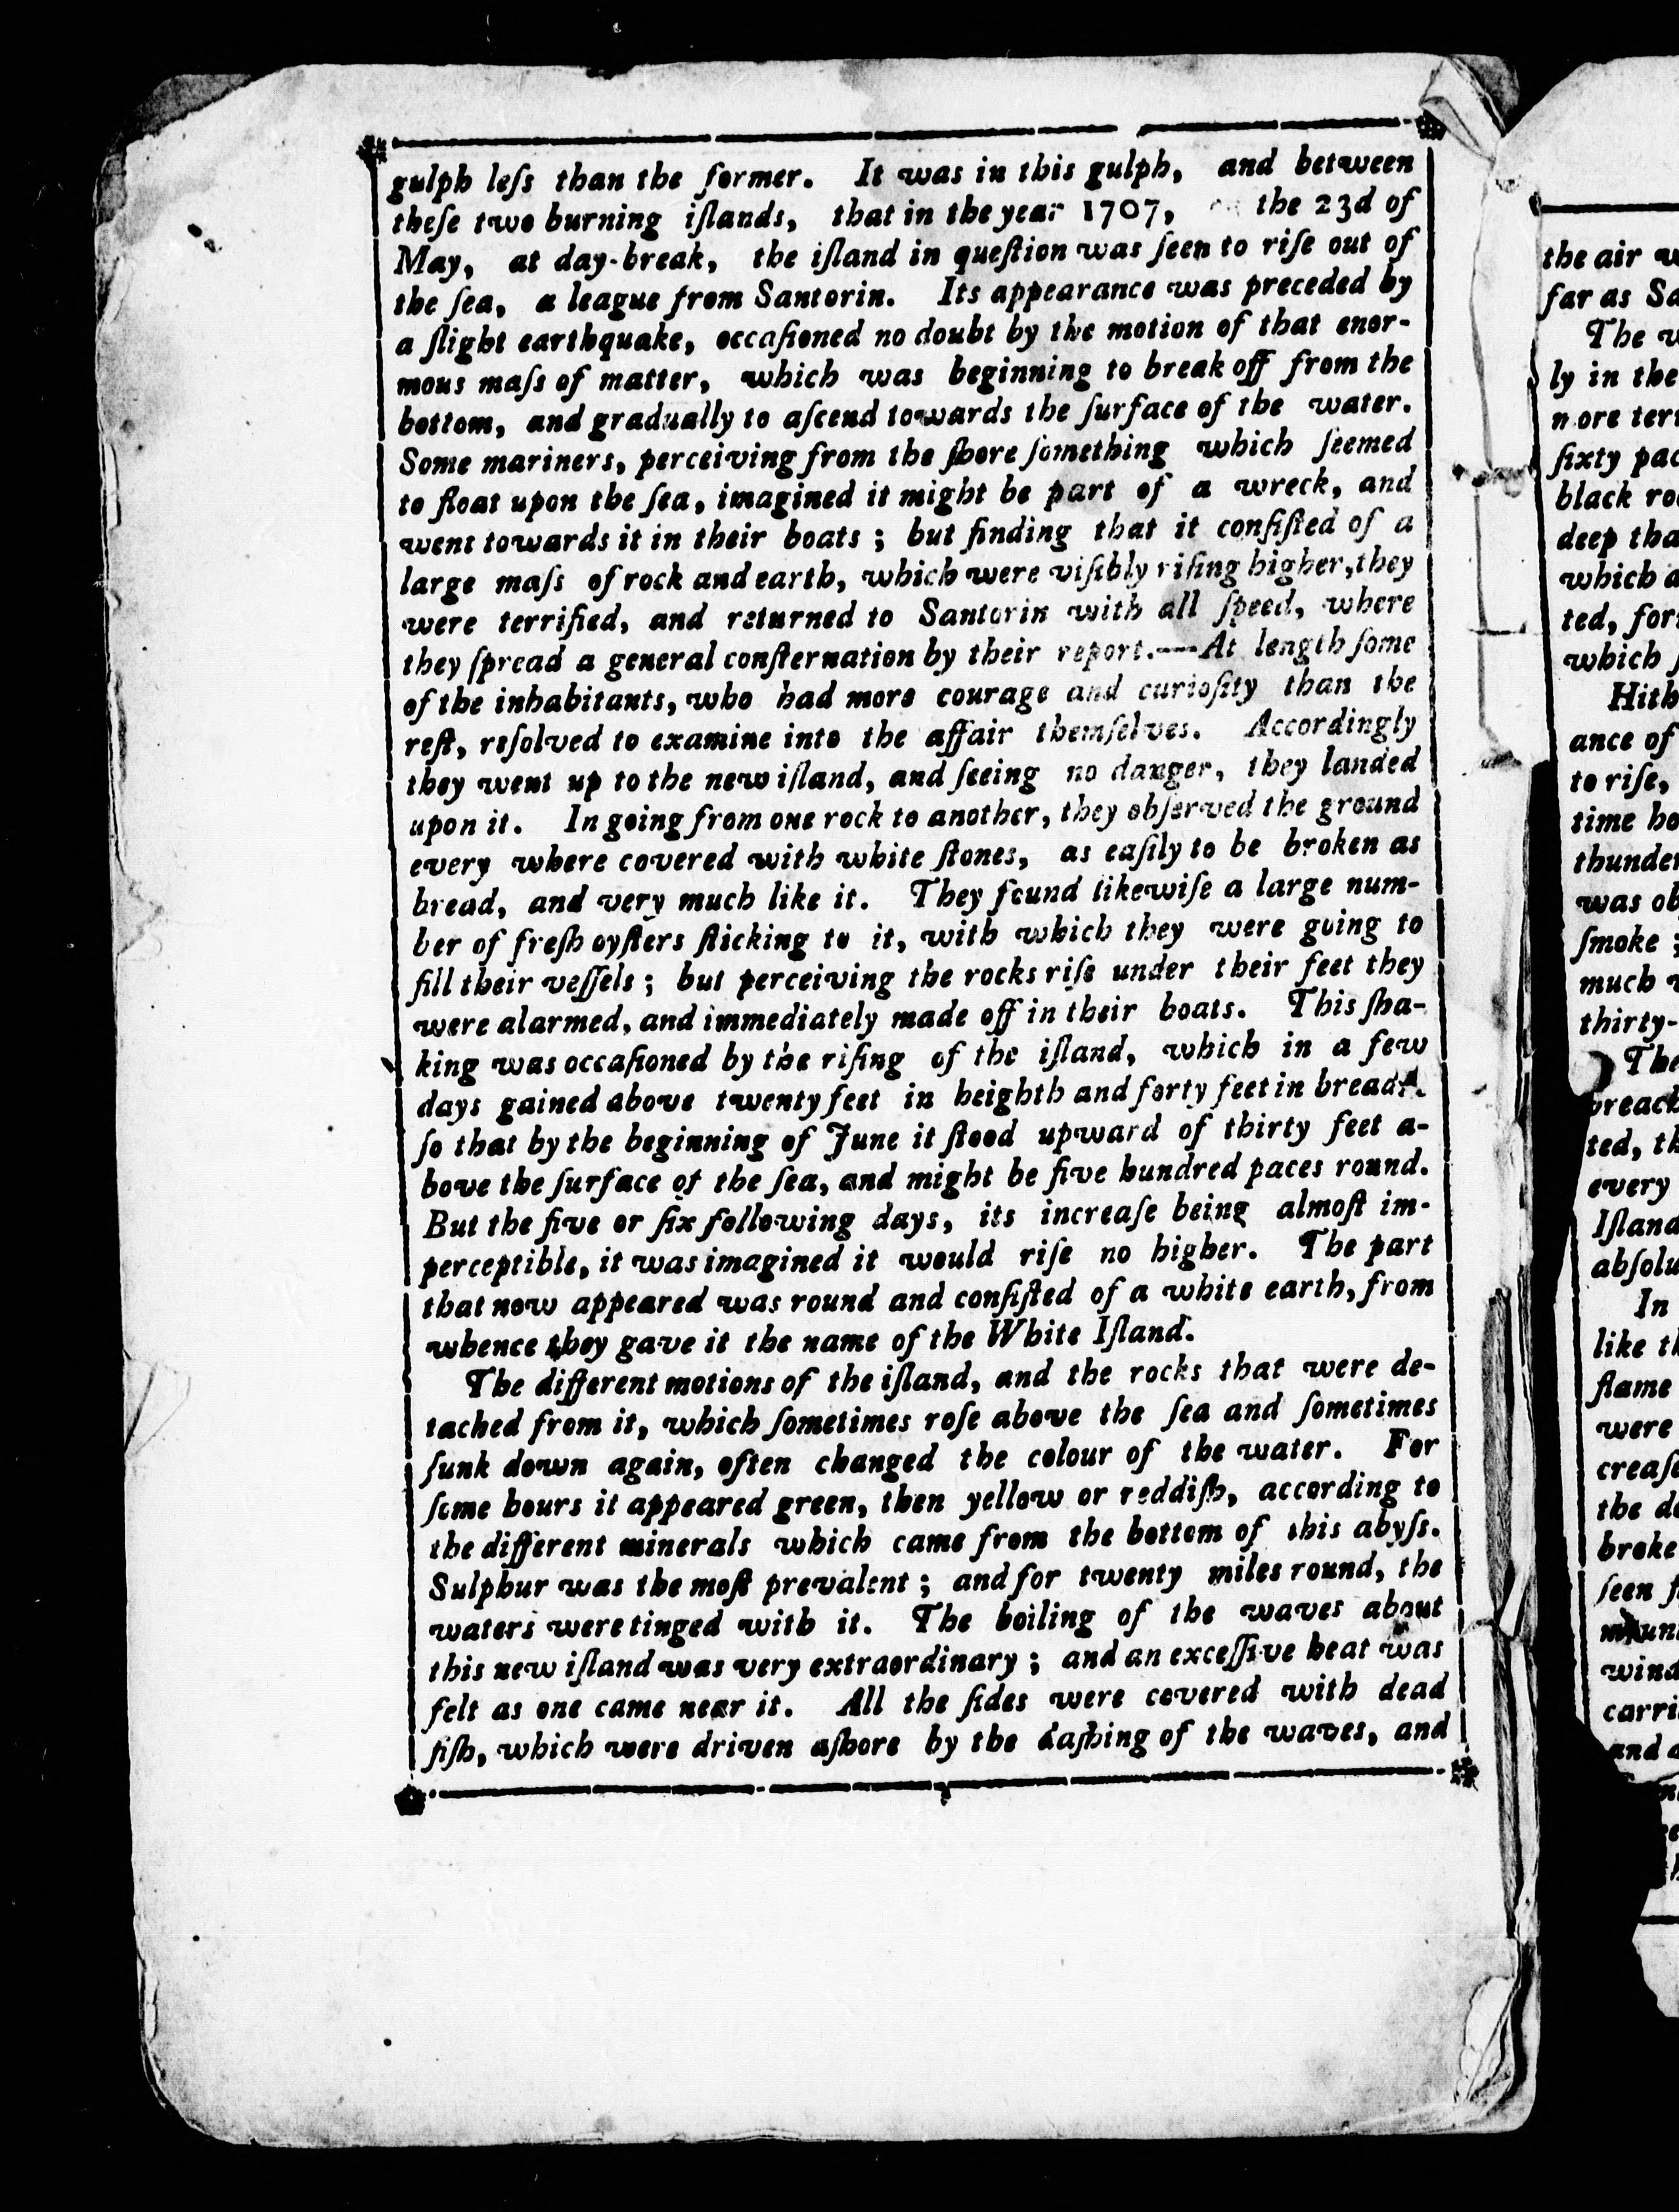 gulph leſs than the former. It was in this gulph, and between
theſe two burning iſlands, that in the year 1707, the 23d of
May, at day-break, the iſland in queſtion was ſeen to riſe out of
the ſea, a league from Santorin. Its appearance was preceded by
a ſlight earthquake, occaſioned no doubt by the motion of that enor-
mous maſs of matter, which was beginning to break off from the
bottom, and gradually to aſcend towards the ſurface of the water.
Some mariners, perceiving from the ſhore ſomething which ſeemed
to float upon the ſea, imagined it might be part of a wreck, and
went towards it in their boats ; but finding that it conſiſted of a
large maſs of rock and earth, which were viſibly riſing higher, they
were terrified, and returned to Santorin with all ſpeed, where
they ſpread a general conſternation by their report.—At length ſome
of the inhabitants, who had more courage and curioſity than the
reſt, reſolved to examine into the affair themſelves. Accordingly
they went up to the new iſland, and ſeeing no danger, they landed
upon it. In going from one rock to another, they obſerved the ground
every where covered with white ſtones, as eaſily to be broken as
bread, and very much like it. They found likewiſe a large num-
ber of freſh oyſters ſticking to it, with which they were going to
fill their veſſels ; but perceiving the rocks riſe under their feet they
were alarmed, and immediately made off in their boats. This ſha-
king was occaſioned by the riſing of the iſland, which in a few
days gained above twenty feet in heighth and forty feet in breadth.
ſo that by the beginning of June it ſtood upward of thirty feet a-
bove the ſurface of the ſea, and might be five hundred paces round.
But the five or ſix following days, its increaſe being almoſt im-
perceptible, it was imagined it would riſe no higher. The part
that now appeared was round and conſiſted of a white earth, from
whence they gave it the name of the White Iſland.
The different motions of the iſland, and the rocks that were de-
tached from it, which ſometimes roſe above the ſea and ſometimes
ſunk down again, often changed the colour of the water. For
ſome hours it appeared green, then yellow or reddiſh, according to
the different minerals which came from the bottom of this abyſs.
Sulphur was the moſt prevalent ; and for twenty miles round, the
waters were tinged with it. The boiling of the waves about
this new iſland was very extraordinary ; and an exceſſive heat was
felt as one came near it. All the ſides were covered with dead
fiſh, which were driven aſhore by the daſhing of the waves, and
the air
far as
The
ly in the
ſixty
black
deep
which
ted,
which
ance of
to riſe,
time
was
ſmoke ;
much
thirty-
The
ted,
every
In
like
flame
were
the
broke
ſeen
wind
and